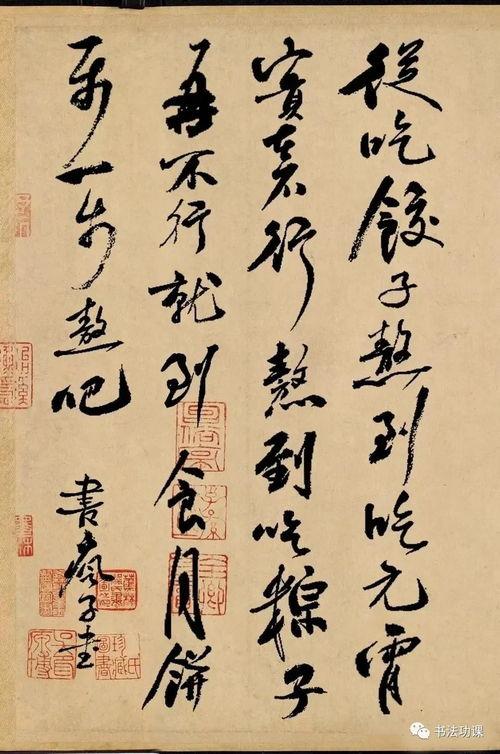 從吃餃子熬到吃元宵
實在不行熬到吃粽子
再不行就到食月餅
一步一步熬吧
書瘋子書
书法功课